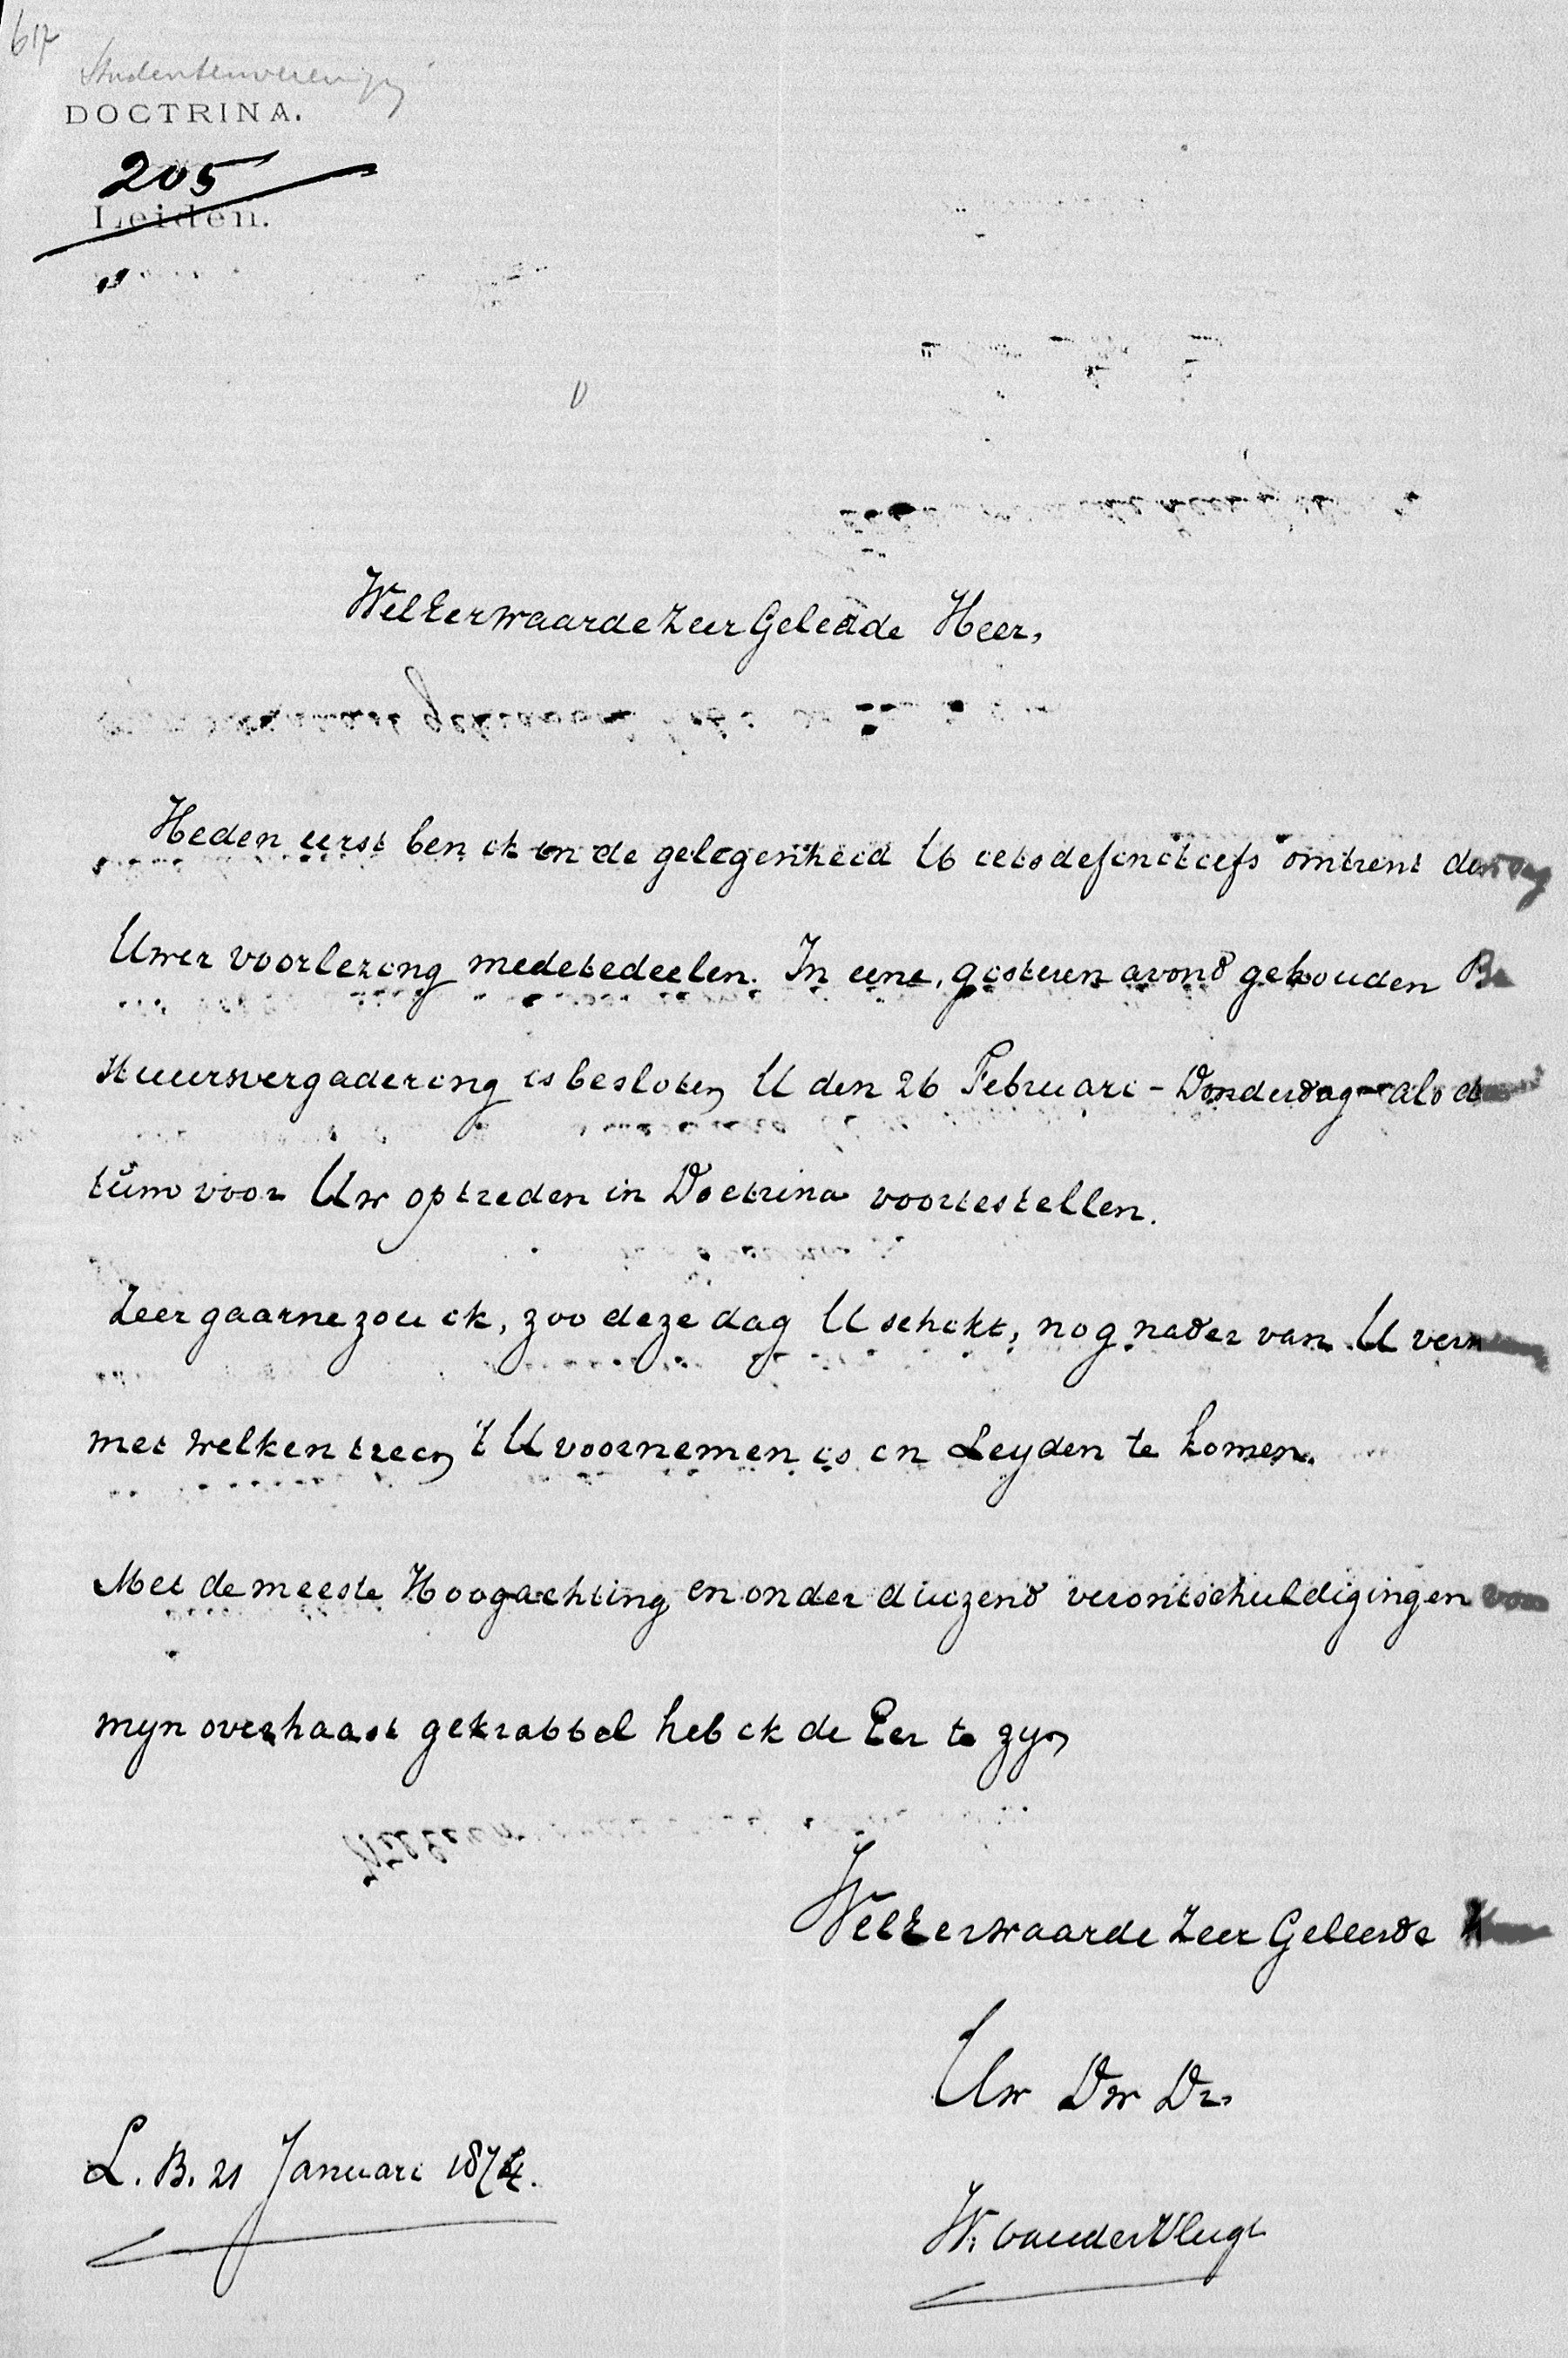 617
Studentenvereniging
DOCTRINA.
205
Leiden.
WelEerwaarde Zeer Geleerde Heer,
Heden eerst ben ik in de gelegenheid U iets definitiefs omtrent den dag
Uwer voorlezing medetedeelen. In eene, gisteren avond gehouden Be
stuursvergadering is besloten U den 26 Februari - Donderdag - als da
tum voor Uw optreden in Doctrina voortestellen.
Zeer gaarne zou ik, zoo deze dag U schikt, nog nader van U vern
met welken trein 't U voornemen is in Leyden te komen.
Met de meeste Hoogachting en onder duizend verontschuldigingen voor
myn overhaast gekrabbel heb ik de Eer te zyn
WelEerwaarde Zeer Geleerde
Uw Dw Dr,
L. B. 21 Januari 1874.
W. van der Vlugt